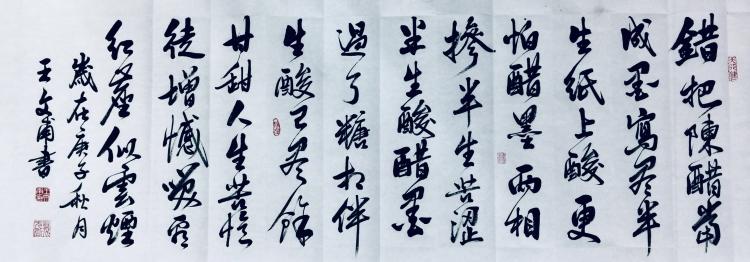 錯把陳醋當
成墨寫尽半
生紙上酸更
怕醋墨兩相
摻半生苦澀
半生酸醋墨
過了糖相伴
生酸已尽餘
甘甜人生苦
徒增憾嘆
紅塵似雲煙
歲在庚子秋月
王文甫書